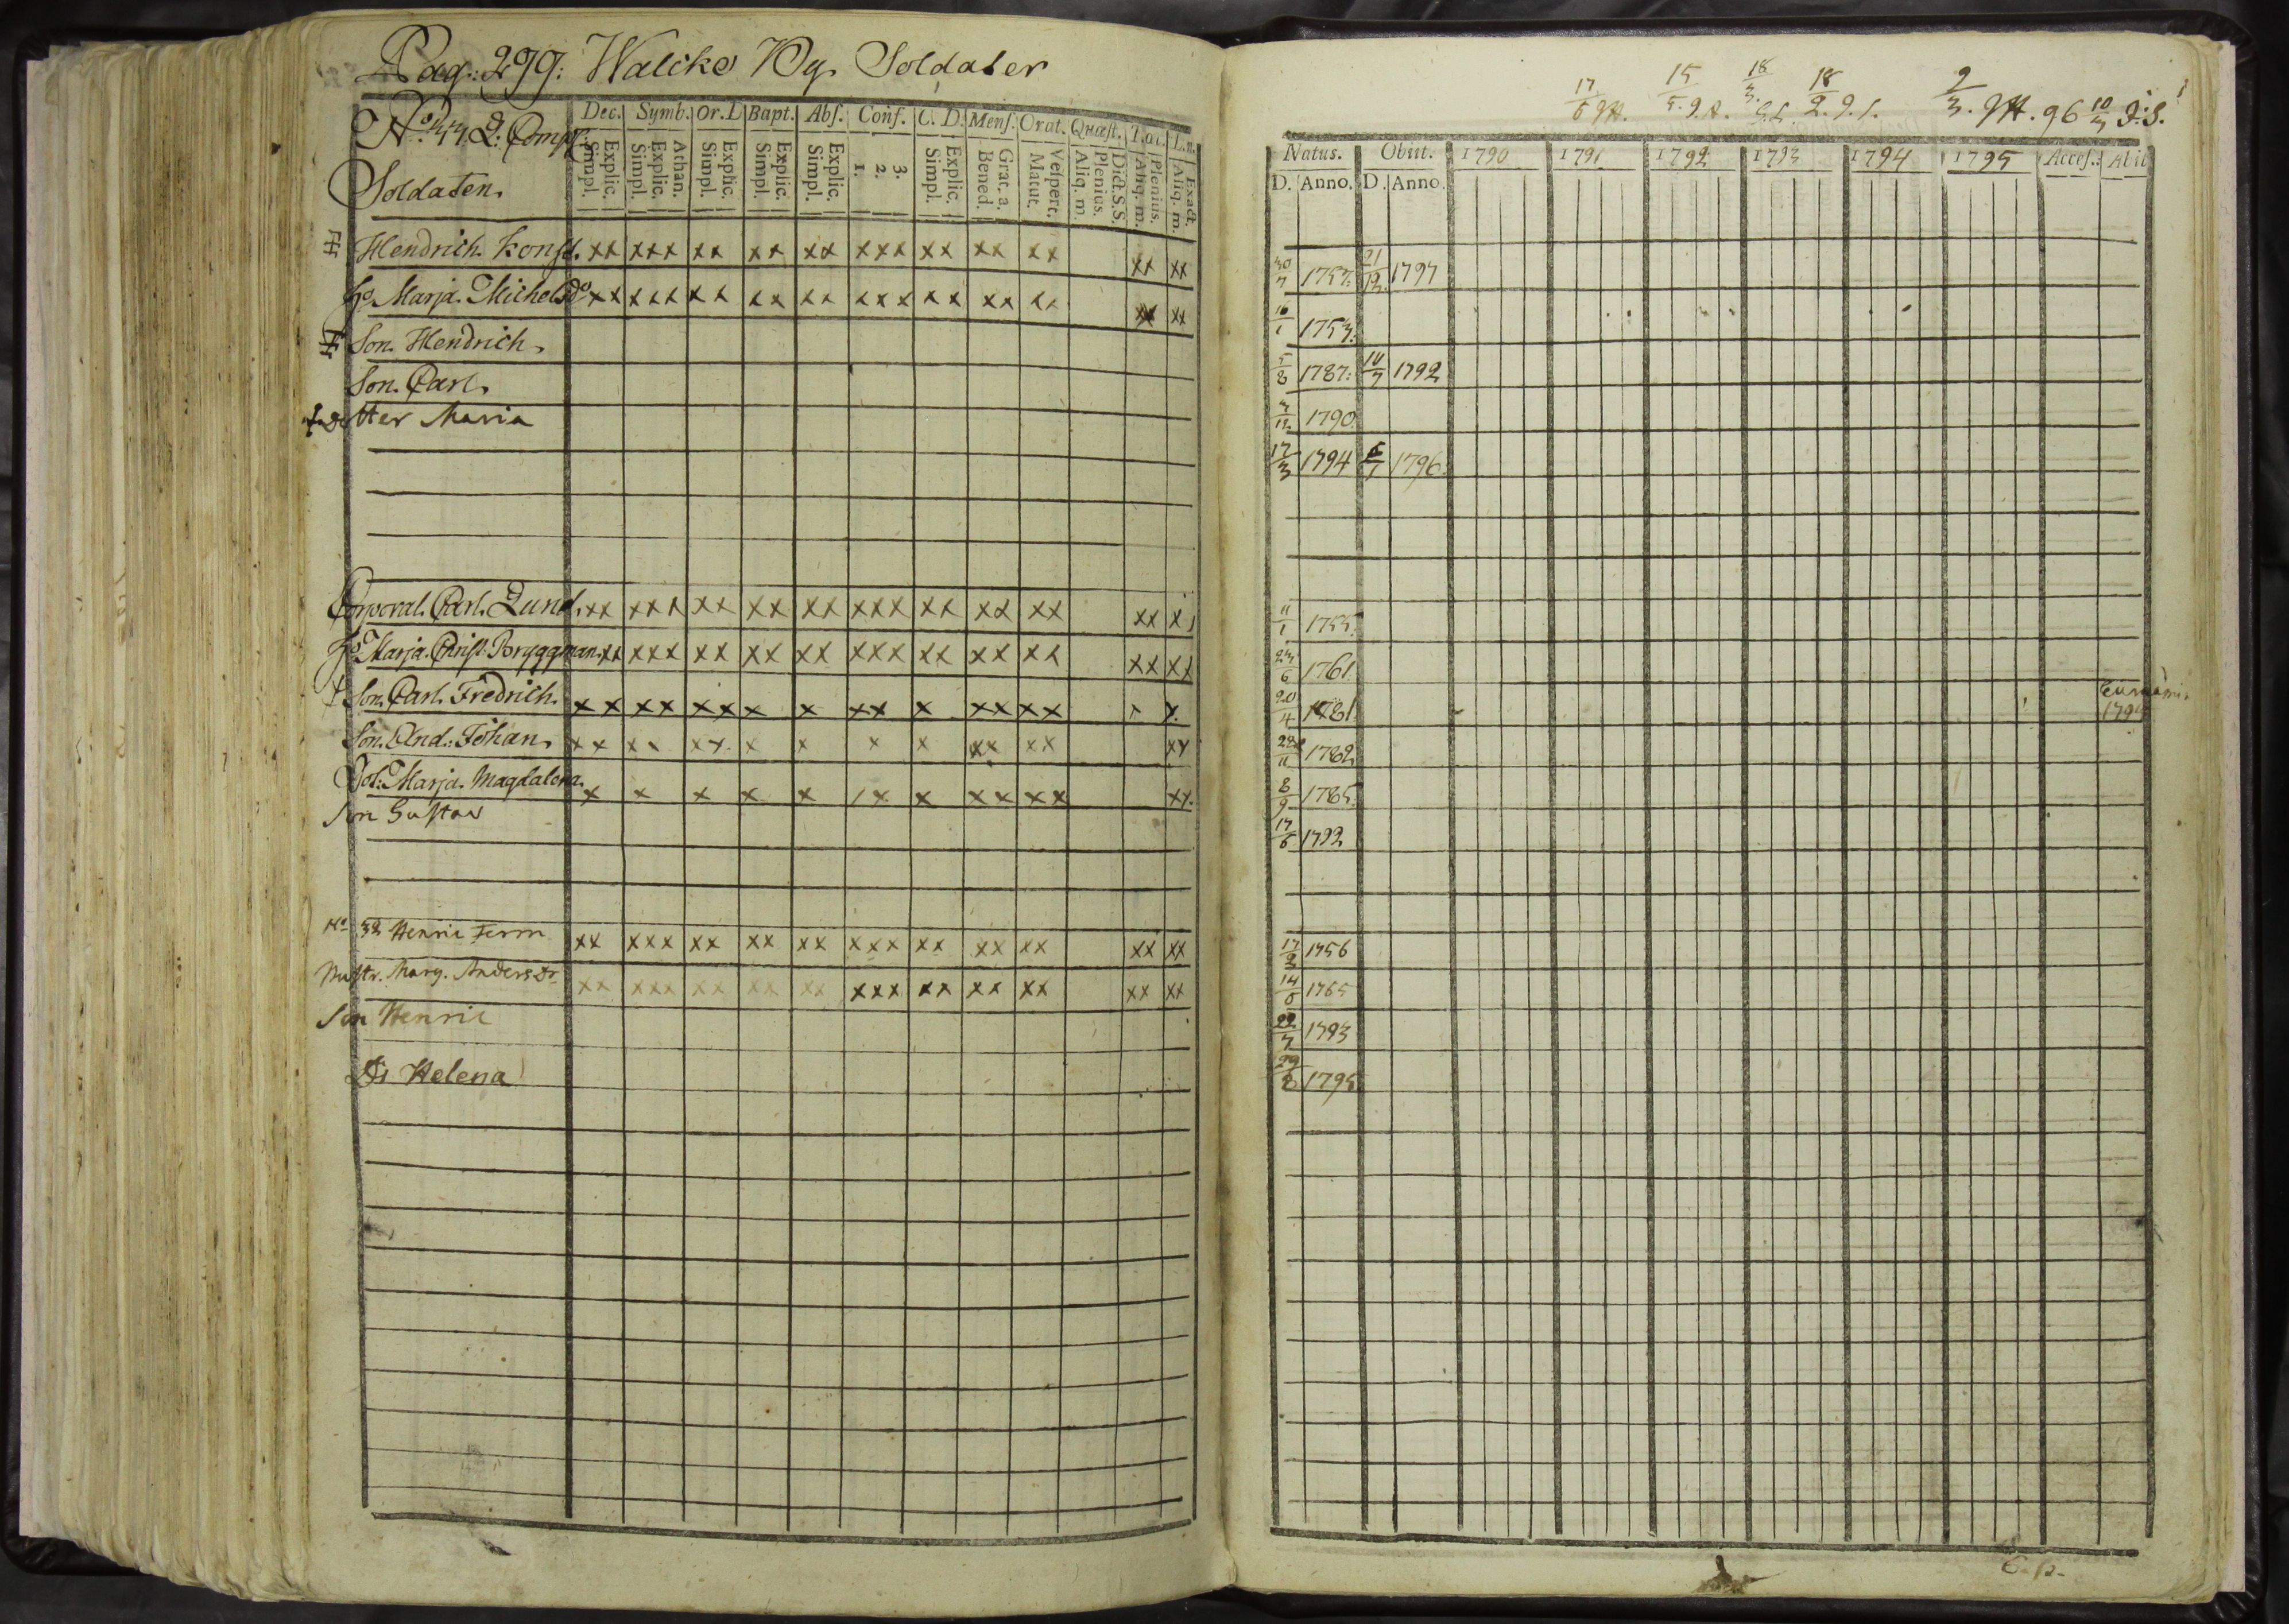 Pag: 299: Walcko By. Soldater
N:o 33. L: Comp:
Dec. Symb. Or.D Bapt. Abſ. Conf. C. D. Menſ. Orat. Quæſt. T.œc. L.n.
Explic. Simpl. Athan. Explic. Simpl. Explic. Simpl. Explic. Simpl. Explic. Simpl. 3. 2. 1. Explic. Simpl. Grat. a. Bened. Veſpert. Matut. Dict. S.S. Plenius. Aliq. m. Plenius. Aliq. m. Exact. Aliq. m.
Soldaten.
Hendrich Konst. xx xxx xx xx xx xxx xx xx xx xx xx
H:o Marja. Michelsd:o xx xxx xx xx xx xxx xx xx xx xx xx
Son. Hendrich.
Son. Carl.
dotter Maria
Corporal. Carl. Lund. xx xxx xx xx xx xxx xx xx xx xx x
H:o Marja. Christ: Bryggman. xx xxx xx xx xx xxx xx xx xx xx xx
Son. Carl. Fredrich. xx xx xx x x xx x xx xx x x
Son. And.: Johan. xx xx xx x x x x xx xx xx
Dot: Marja. Magdalena. x x x x x x x xx xx xx
Son Gustav
No 32 Henric Ferm xx xxx xx xx xx xxx xx xx xx xx xx
Hustr. Marg. Andersdr xx xxx xx xx xx xxx xx xx xx xx xx
Son Henric
Dr Helena
17/5 15/5 18/3 18/2 2/3 96 10/3 J.S.
Natus. Obiit. 1790 1791 1792 1793 1794 1795 Acceſ.: Abit
D. Anno. D. Anno.
30/7 1757: 21/12. 1797
16/1 1753:
5/8 1787: 10/7 1792
3/12 1790
17/3 1794 6/1 1796
11/1 1755.
23/6 1761.
20/4 1781 1794
28/11 1782
8/9 1785.
17/6 1792
17/2 1756
14/5 1765
22/7 1793
29/8 1795